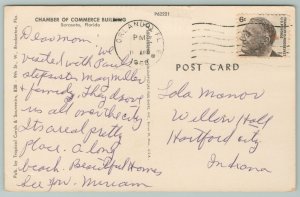 CHAMBER OF COMMERCE BUILDING
Sarasota, Florida
P62221
Dear mom: we
visited with Paul's
stepsister may miller
& family, they drove
us all over the city
Its a real pretty
place. a long
beach. Beautiful Homes
See You. Miriam
ORLANDO, FLA.
PM
6¢
POST CARD
Ida Manor
Willow Hall
Hartford City
Indiana